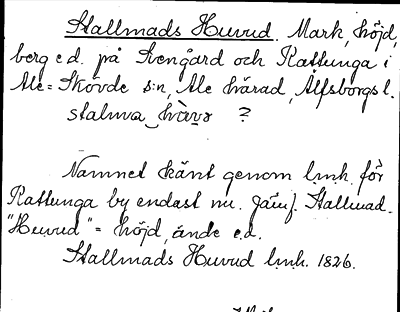 Stallmads Huvud. Mark, höjd,
berg e.d. på Svengård och Kattunga i
Ale-Skövde s:n, Ale härad, Älfsborgs l.
stalma hàvɘ ?
Namnet känt genom l.m.h. för
Kattunga by endast nu. Jämf. Stallmad.
"Huvud" = höjd, ände e.d.
Stallmads Huvud l.m.h. 1826.